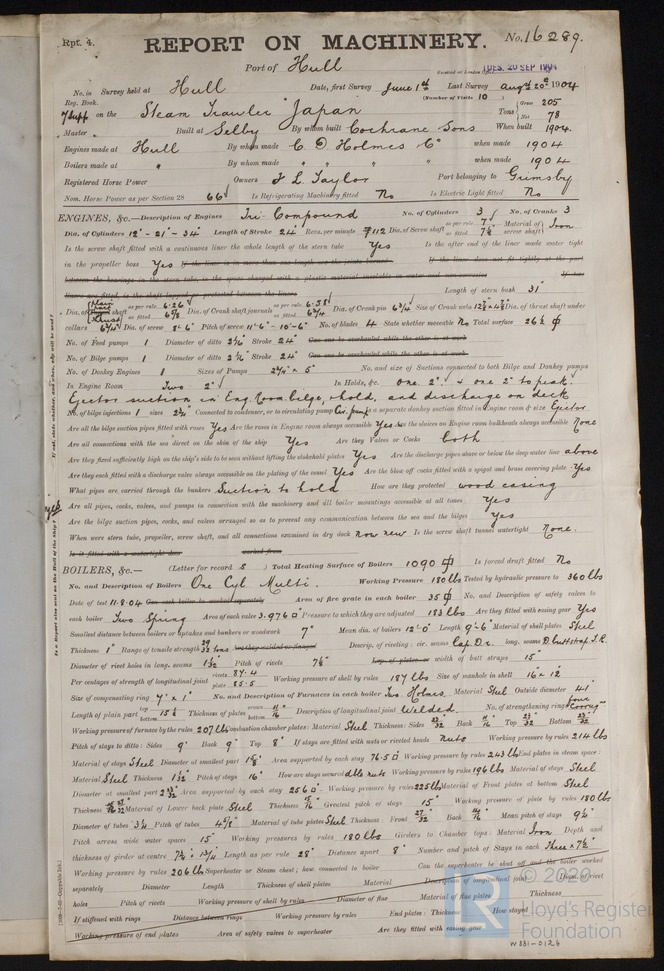 Rpt. 4.
REPORT ON MACHINERY. No. 16289.
Port of Hull
Received at London Office TUES. 20 SEP 1904
No. in Survey held at Hull Date, first Survey June 1st Last Survey Augt 20th 1904
Reg. Book. (Number of Visits 10)
7 Supp on the Steam Trawler Japan Tons { Gross 205 Net 78
Master Built at Selby By whom built Cochrane Sons When built 1904.
Engines made at Hull By whom made C D Holmes Co when made 1904
Boilers made at " By whom made " " " " when made 1904
Registered Horse Power Owners F L Taylor Port belonging to Grimsby
Nom. Horse Power as per Section 28 66 Is Refrigerating Machinery fitted No Is Electric Light fitted No
ENGINES, &c.—Description of Engines Tri Compound No. of Cylinders 3 No. of Cranks 3
Dia. of Cylinders 12" - 21" - 34" Length of Stroke 24 Revs. per minute 112 Dia. of Screw shaft as per rule 7" as fitted 7⅛ Material of screw shaft Iron
Is the screw shaft fitted with a continuous liner the whole length of the stern tube Yes Is the after end of the liner made water tight
in the propeller boss Yes If the liner is in more than one length are the joints burned If the liner does not fit tightly at the part
between the bearings in the stern tube, is the space charged with a plastic material insoluble in water and non-corrosive If two
liners are fitted, is the shaft lapped or protected between the liners Length of stern bush 31"
Dia. of shaft as per rule 6.26 as fitted 6⅝ Dia. of Crank shaft journals as per rule 6.58 as fitted 6¾ Dia. of Crank pin 6¾ Size of Crank webs Dia. of thrust shaft under
collars 6¾ Dia. of screw 8-6" Pitch of screw 11-6" - 10-6" No. of blades 4 State whether moveable No Total surface 26½
No. of Feed pumps 1 Diameter of ditto Stroke 24" Can one be overhauled while the other is at work
No. of Bilge pumps 1 Diameter of ditto Stroke 24" Can one be overhauled while the other is at work
No. of Donkey Engines 1 Sizes of Pumps No. and size of Suctions connected to both Bilge and Donkey pumps
In Engine Room Two 2" In Holds, &c. One 2" & one 2" to peak.
Ejector suction in Eng. Room bilge, & hold, and discharge on deck
No. of bilge injections 1 sizes Connected to condenser, or to circulating pump Cir. pump Is a separate donkey suction fitted in Engine room & size Ejector
Are all the bilge suction pipes fitted with roses Yes Are the roses in Engine room always accessible Yes Are the sluices on Engine room bulkheads always accessible None
Are all connections with the sea direct on the skin of the ship Yes Are they Valves or Cocks both
Are they fixed sufficiently high on the ship's side to be seen without lifting the stokehold plates Yes Are the discharge pipes above or below the deep water line above
Are they each fitted with a discharge valve always accessible on the plating of the vessel Yes Are the blow off cocks fitted with a spigot and brass covering plate Yes
What pipes are carried through the bunkers Suction to hold How are they protected wood casing
Are all pipes, cocks, valves, and pumps in connection with the machinery and all boiler mountings accessible at all times Yes
Are the bilge suction pipes, cocks, and valves arranged so as to prevent any communication between the sea and the bilges Yes
When were stern tube, propeller, screw shaft, and all connections examined in dry dock now new Is the screw shaft tunnel watertight None.
Is it fitted with a watertight door worked from
BOILERS, &c.— (Letter for record S) Total Heating Surface of Boilers 1090 Is forced draft fitted No
No. and Description of Boilers One Cyl. Multi. Working Pressure 180 lbs Tested by hydraulic pressure to 360 lbs
Date of test 11.8.04 Can each boiler be worked separately Area of fire grate in each boiler 35 No. and Description of safety valves to
each boiler Two Spring Area of each valve 3.976 Pressure to which they are adjusted 183 lbs Are they fitted with easing gear Yes
Smallest distance between boilers or uptakes and bunkers or woodwork 7" Mean dia. of boilers 12'-0" Length 9'-6" Material of shell plates Steel
Thickness 1" Range of tensile strength Are they welded or flanged Descrip. of riveting: cir. seams Lap D.r. long. seams D. Buttstrap T.R.
Diameter of rivet holes in long. seams 1 1/32 Pitch of rivets Lap of plates or width of butt straps 15"
Per centages of strength of longitudinal joint rivets 87.4 plate 85.5 Working pressure of shell by rules 187 lbs Size of manhole in shell 16" x 12"
Size of compensating ring 7" x 1" No. and Description of Furnaces in each boiler Two Holmes Material Steel Outside diameter 41"
Length of plain part top bottom 15½ Thickness of plates crown bottom Description of longitudinal joint Welded. No. of strengthening rings four Corrug
Working pressure of furnace by the rules 207 lbs Combustion chamber plates: Material Steel Thickness: Sides 23/32 Back 11/16 Top 23/32 Bottom 23/32
Pitch of stays to ditto: Sides 9" Back 9" Top 8" If stays are fitted with nuts or riveted heads nuts Working pressure by rules 214 lbs
Material of stays Steel Diameter at smallest part Area supported by each stay 76.5 Working pressure by rules 243 lbs End plates in steam space:
Material Steel Thickness 1 1/32 Pitch of stays 16" How are stays secured dble nuts Working pressure by rules 196 lbs Material of stays Steel
Diameter at smallest part Area supported by each stay 256 Working pressure by rules 225 lbs Material of Front plates at bottom Steel
Thickness Material of Lower back plate Steel Thickness Greatest pitch of stays 15" Working pressure of plate by rules 180 lbs
Diameter of tubes 3¼ Pitch of tubes Material of tube plates Steel Thickness: Front Back Mean pitch of stays
Pitch across wide water spaces 15" Working pressures by rules 180 lbs Girders to Chamber tops: Material Iron Depth and
thickness of girder at centre Length as per rule 28" Distance apart 8" Number and pitch of Stays in each Three x 7½"
Working pressure by rules 206 lbs Superheater or Steam chest; how connected to boiler Can the superheater be shut off and the boiler worked
separately Diameter Length Thickness of shell plates Material Description of longitudinal joint Diam. of rivet
holes Pitch of rivets Working pressure of shell by rules Diameter of flue Material of flue plates Thickness
If stiffened with rings Distance between rings Working pressure by rules End plates: Thickness How stayed
Working pressure of end plates Area of safety valves to superheater Are they fitted with easing gear
© 2020
LR
Lloyd's Register
Foundation
W881-0126